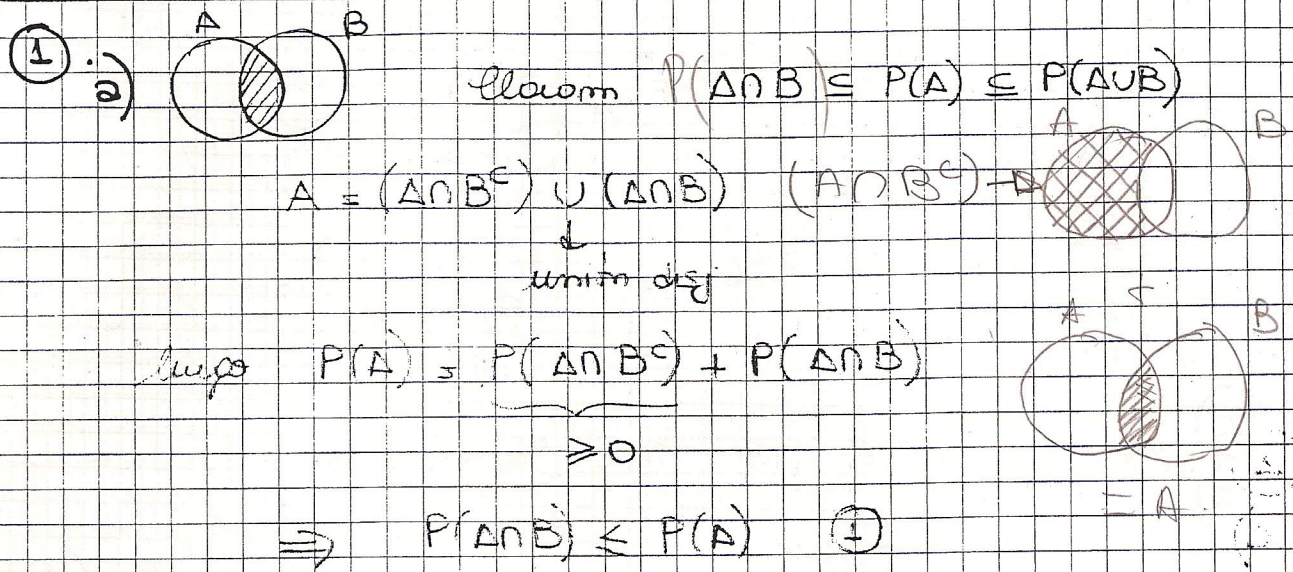 1. a) A B
P(A∩B) ≤ P(A) ≤ P(A∪B)
A B
A = (A∩Bᶜ) ∪ (A∩B) (A∩Bᶜ) →
↓
unión disj
A B
luego P(A) = P(A∩Bᶜ) + P(A∩B)
≥0
= A
⇒ P(A∩B) ≤ P(A) 1